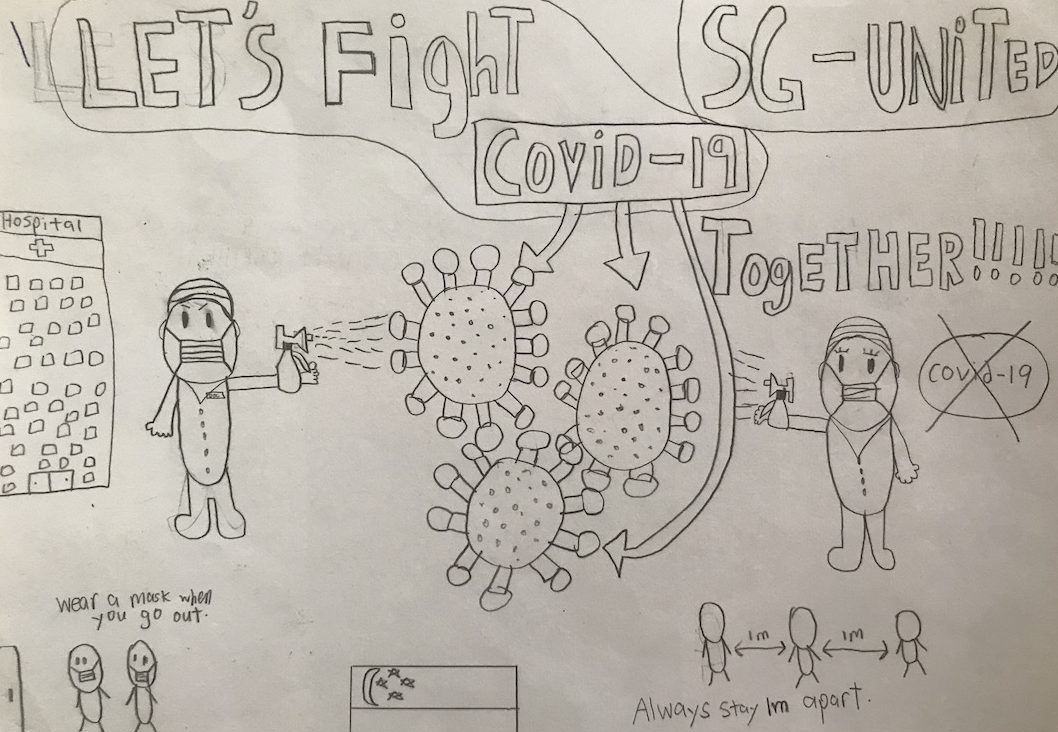 LET'S FighT
SG-UNiTED
COViD-19
TOgETHER!!!!!
Hospital
covid-19
wear a mask when
you go out.
1m
1m
Always stay 1m apart.